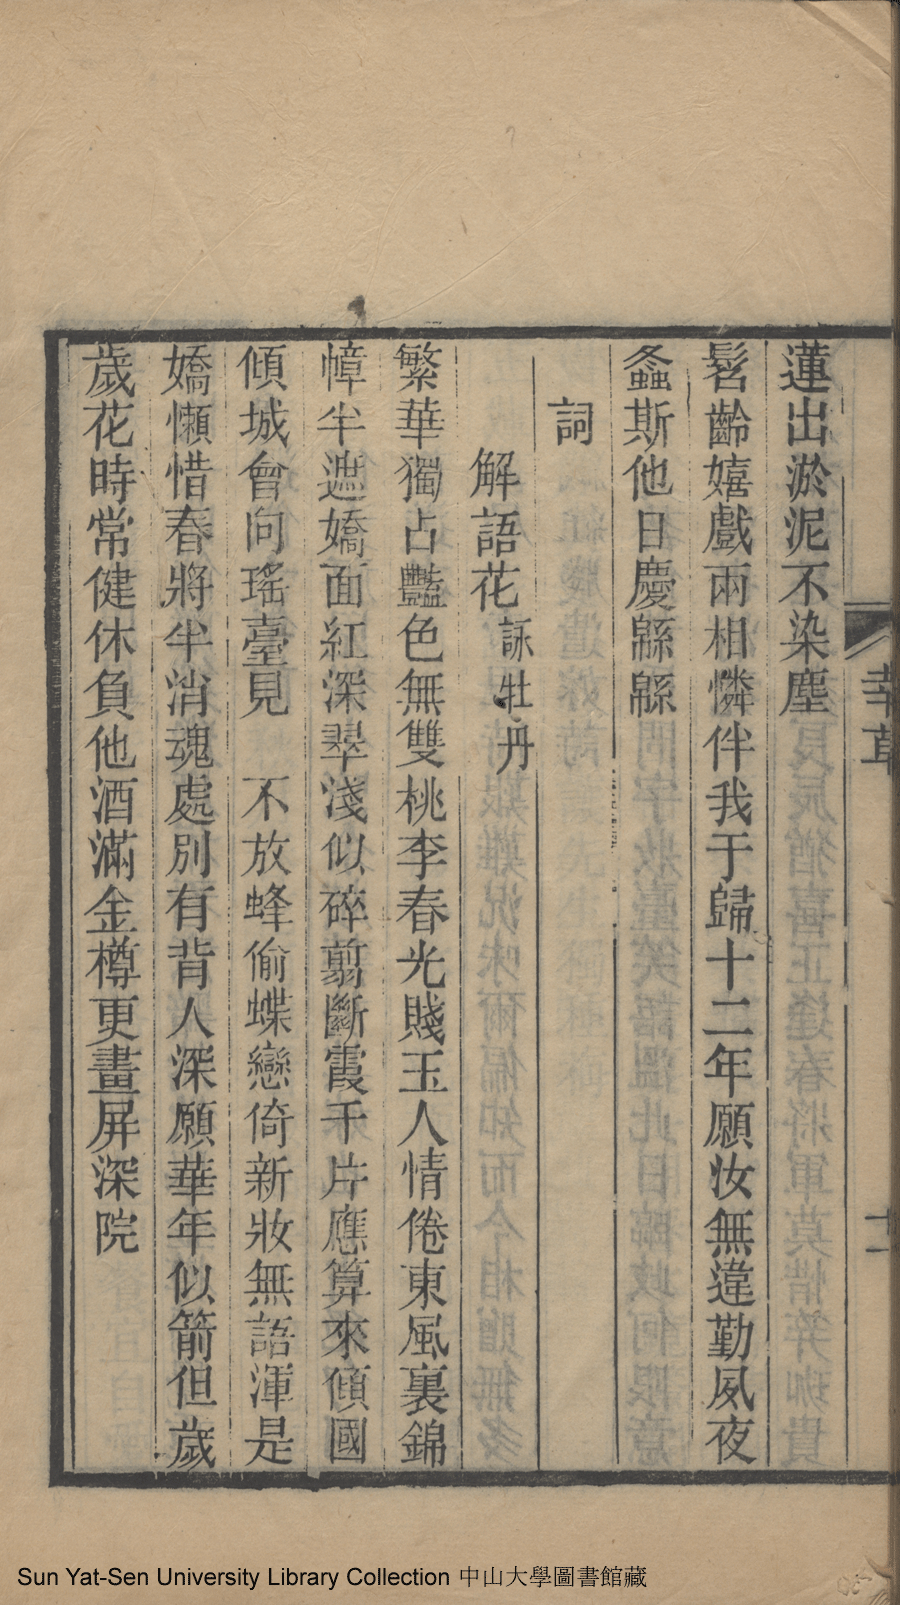 蓮出淤泥不染塵
髫齡嬉戲兩相憐伴我于歸十二年願汝無違勤夙夜
螽斯他日慶緜緜
詞
解語花詠牡丹
繁華獨占豔色無雙桃李春光賤玉人情倦東風裏錦
幛半遮嬌面紅深翠淺似碎翦斷霞千片應算來傾國
傾城會向瑤臺見　不放蜂偷蝶戀倚新妝無語渾是
嬌懶惜春將半消魂處別有背人深願華年似箭但歲
歲花時常健休負他酒滿金樽更畫屏深院
Sun Yat-Sen University Library Collection 中山大學圖書館藏